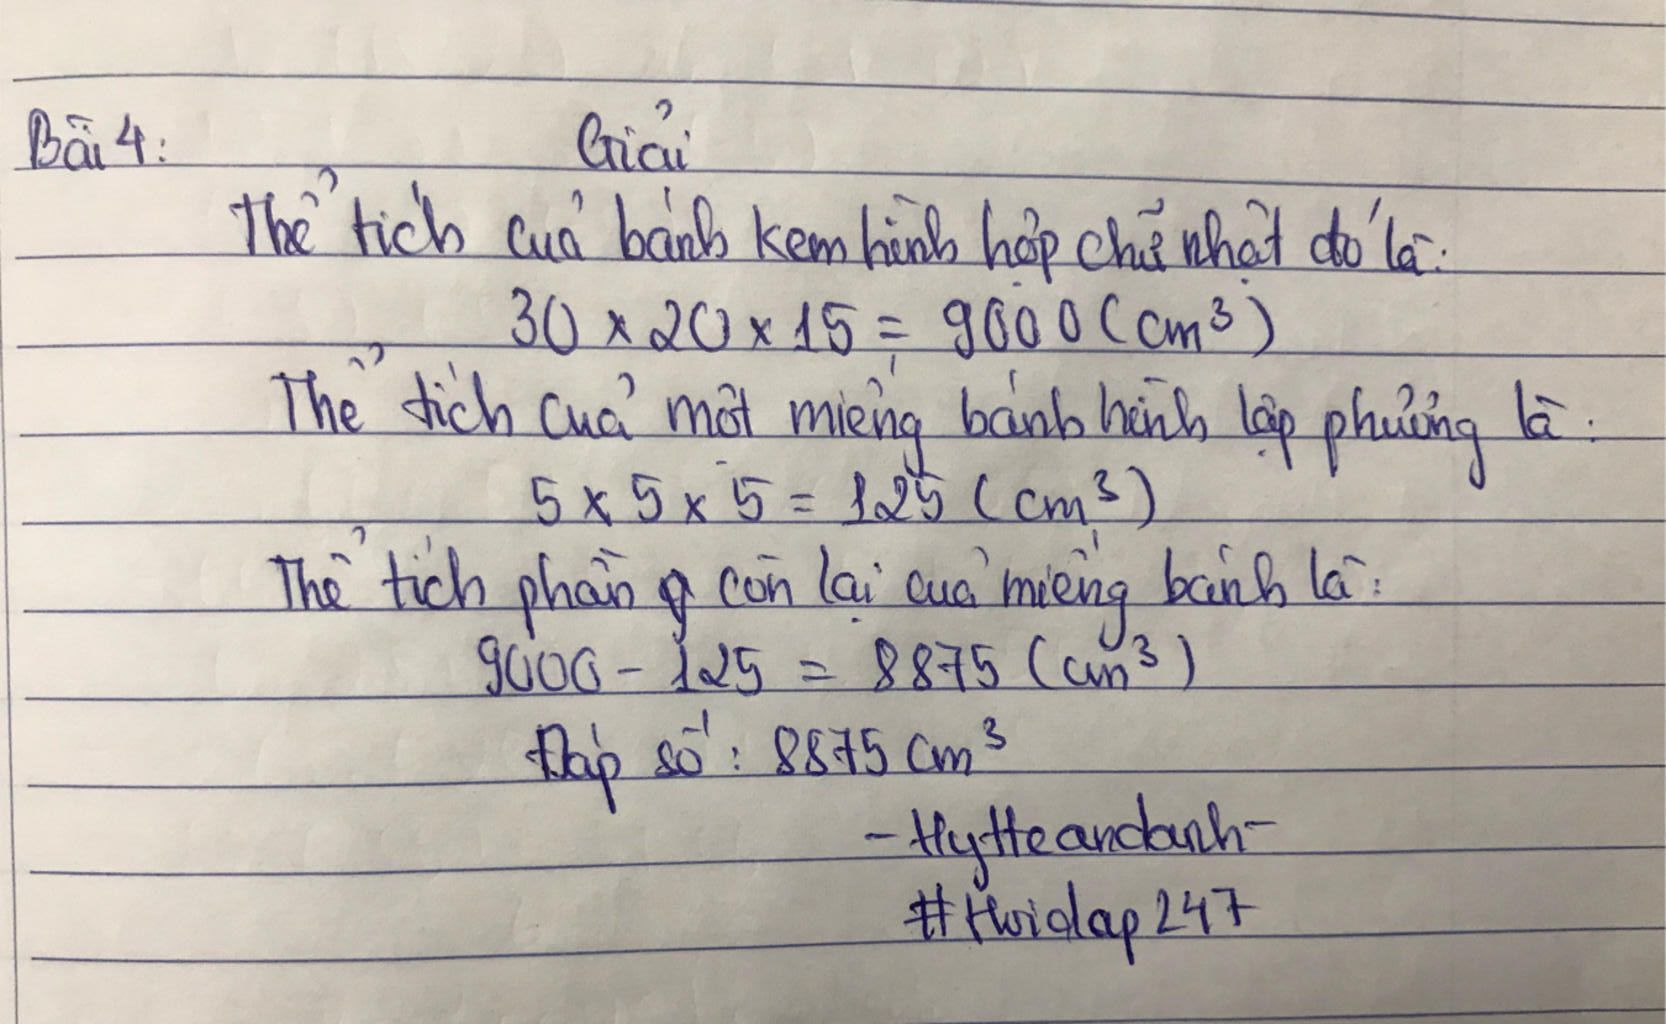 Bài 4: Giải
Thể tích của bánh kem hình hộp chữ nhật đó là:
30 x 20 x 15 = 9000 (cm³)
Thể tích của một miếng bánh hình lập phương là:
5 x 5 x 5 = 125 (cm³)
Thể tích phần còn lại của miếng bánh là:
9000 - 125 = 8875 (cm³)
Đáp số: 8875 cm³
- Hytteandanh -
#Hoidap247